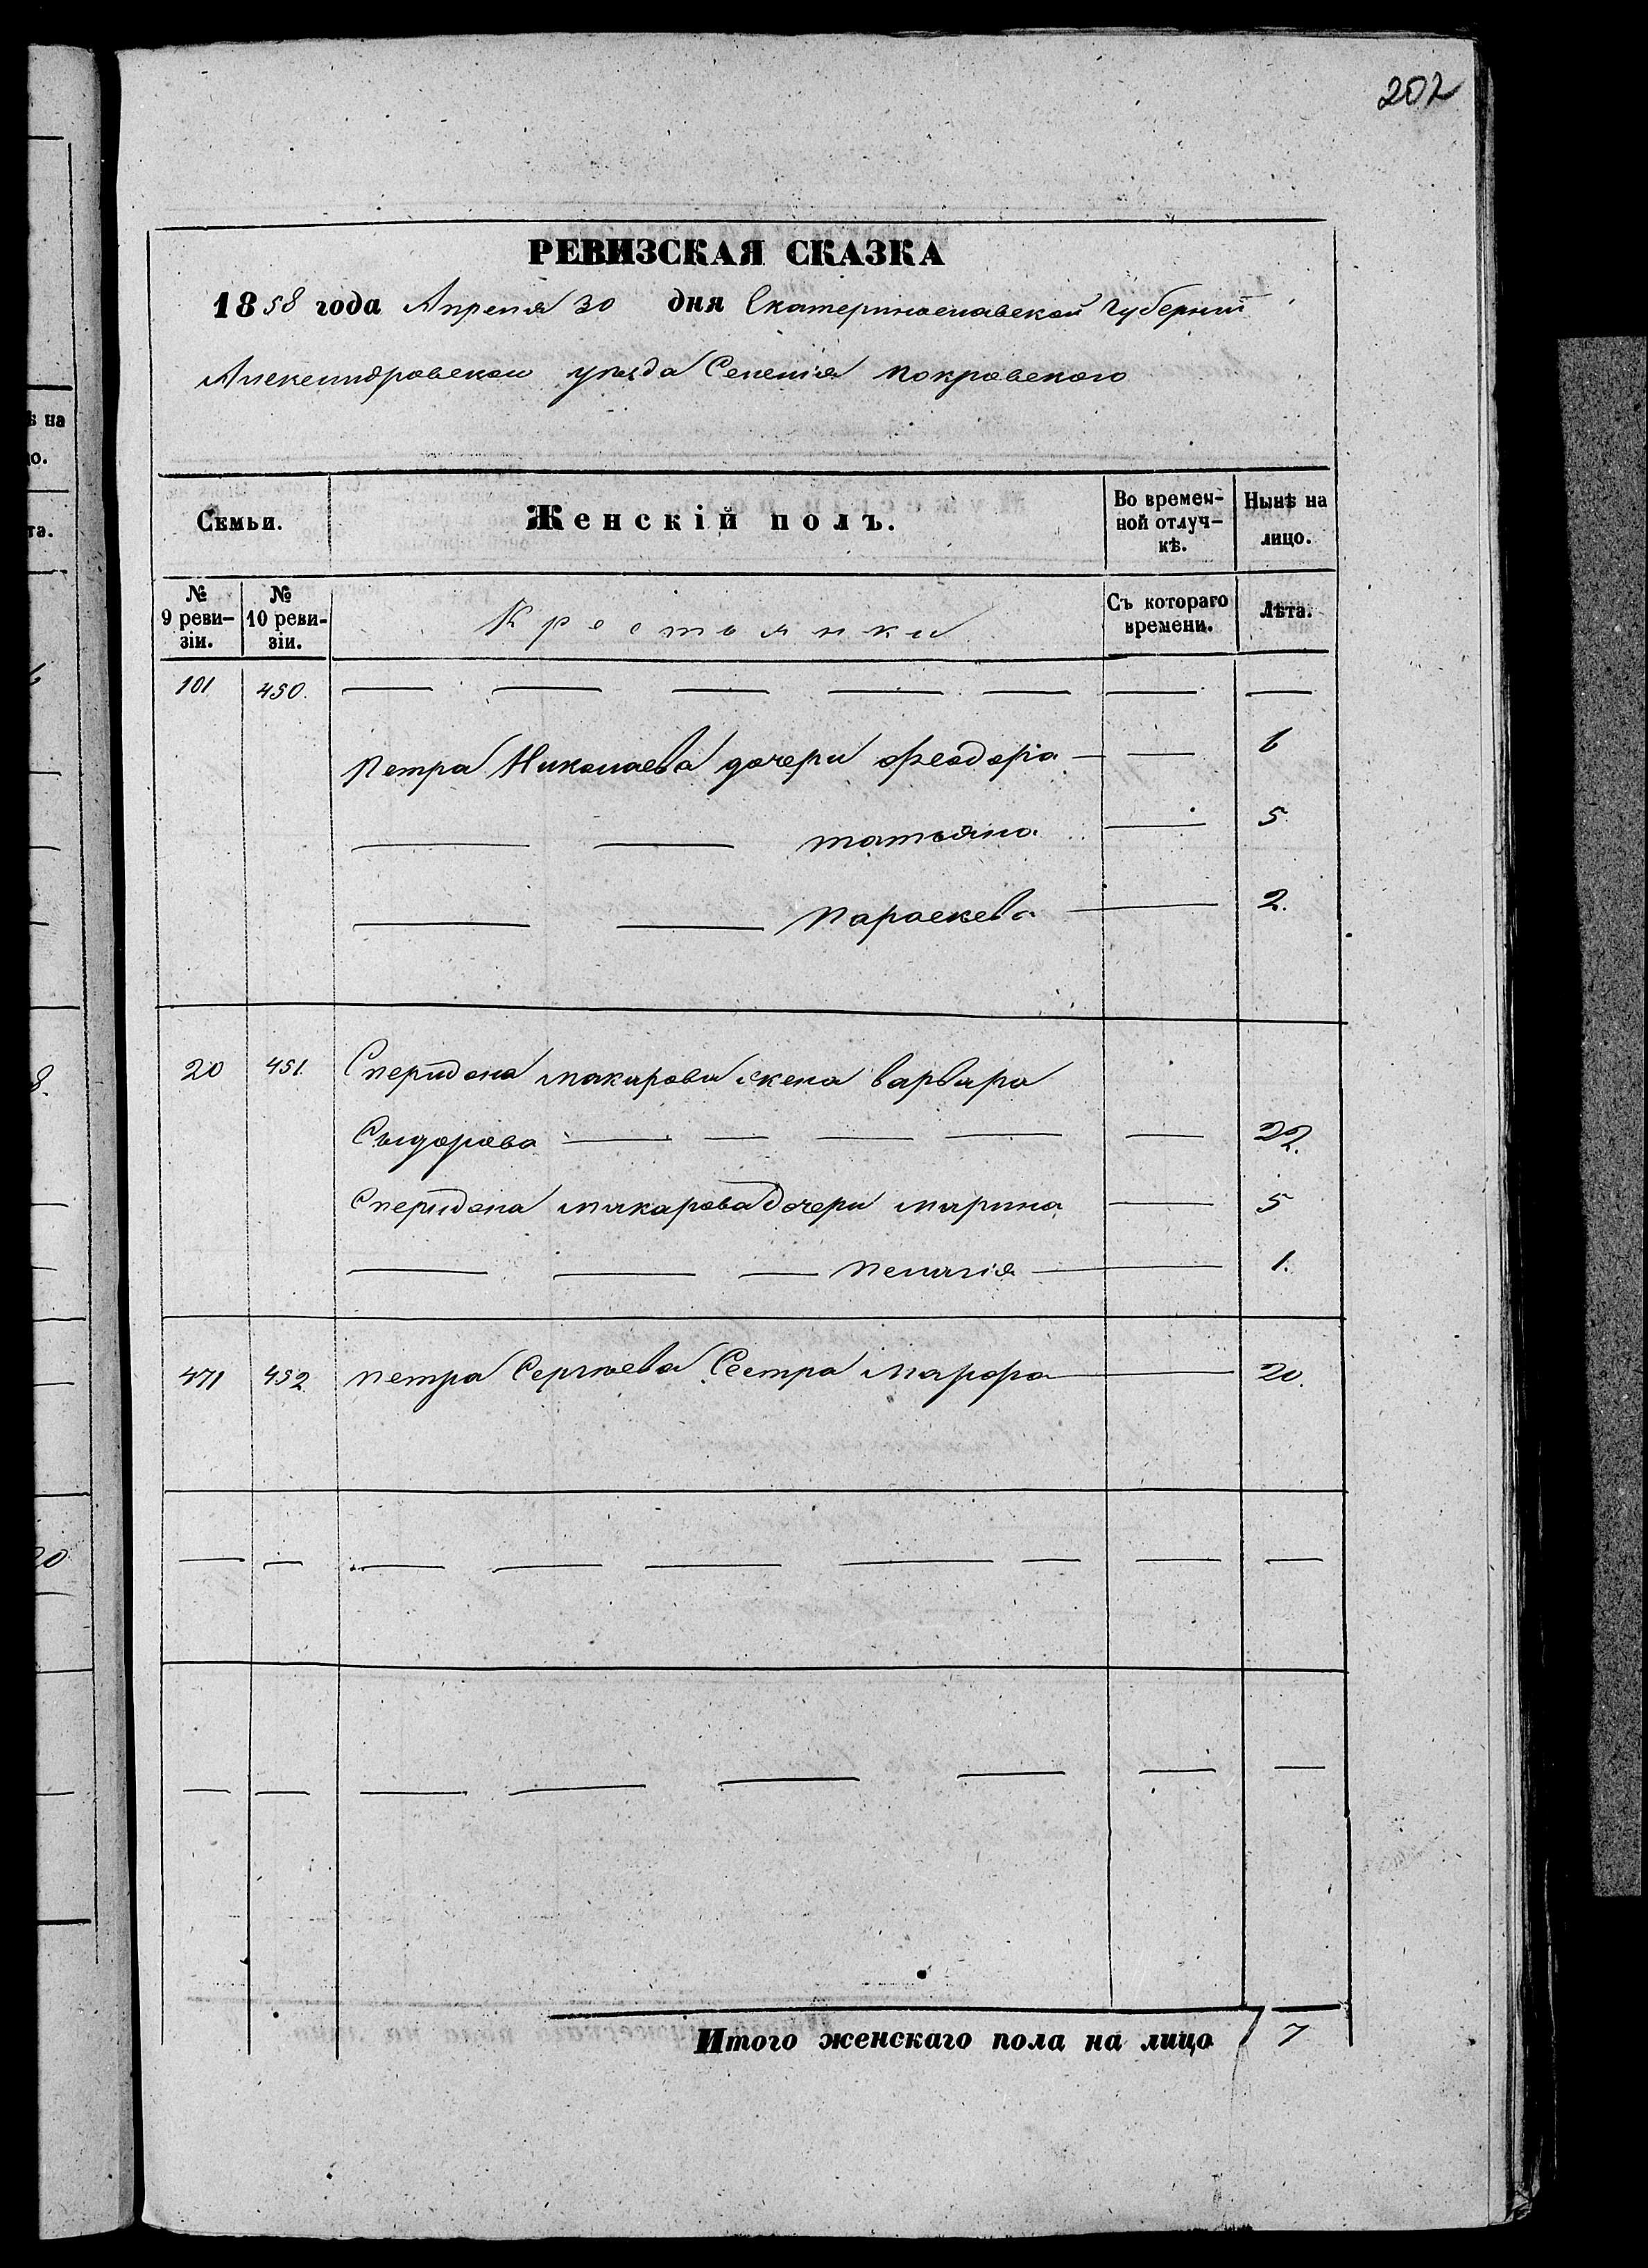 202
РЕВИЗСКАЯ СКАЗКА
1858 года Апреля 30 дня Екатеринославской Губернии
Александровскаго уѣзда Селенія Покровскаго
Семьи.
Женскій полъ.
Во времен-
ной отлуч-
кѣ.
Нынѣ на
лицо.
№
9 реви-
зіи.
№
10 реви-
зіи.
Крестьянки
Съ котораго
времени.
Лѣта.
101 450. — — — — — — —
Петра Николаева дочери Феодора — — 6
— — татьяна — 5
— — Параскева — 2.
20 451. Спиридона макарова жена варвара
Сыдорова — — — — — 22.
Спиридона макарова дочери марина — 5
— — — пелагія — 1.
471 452. петра Сергѣева Сестра Марфа — 20.
— — — — — — — — —
— — — — — — — —
Итого женскаго пола на лицо 7
ѣ на
о.
та.
8.
20